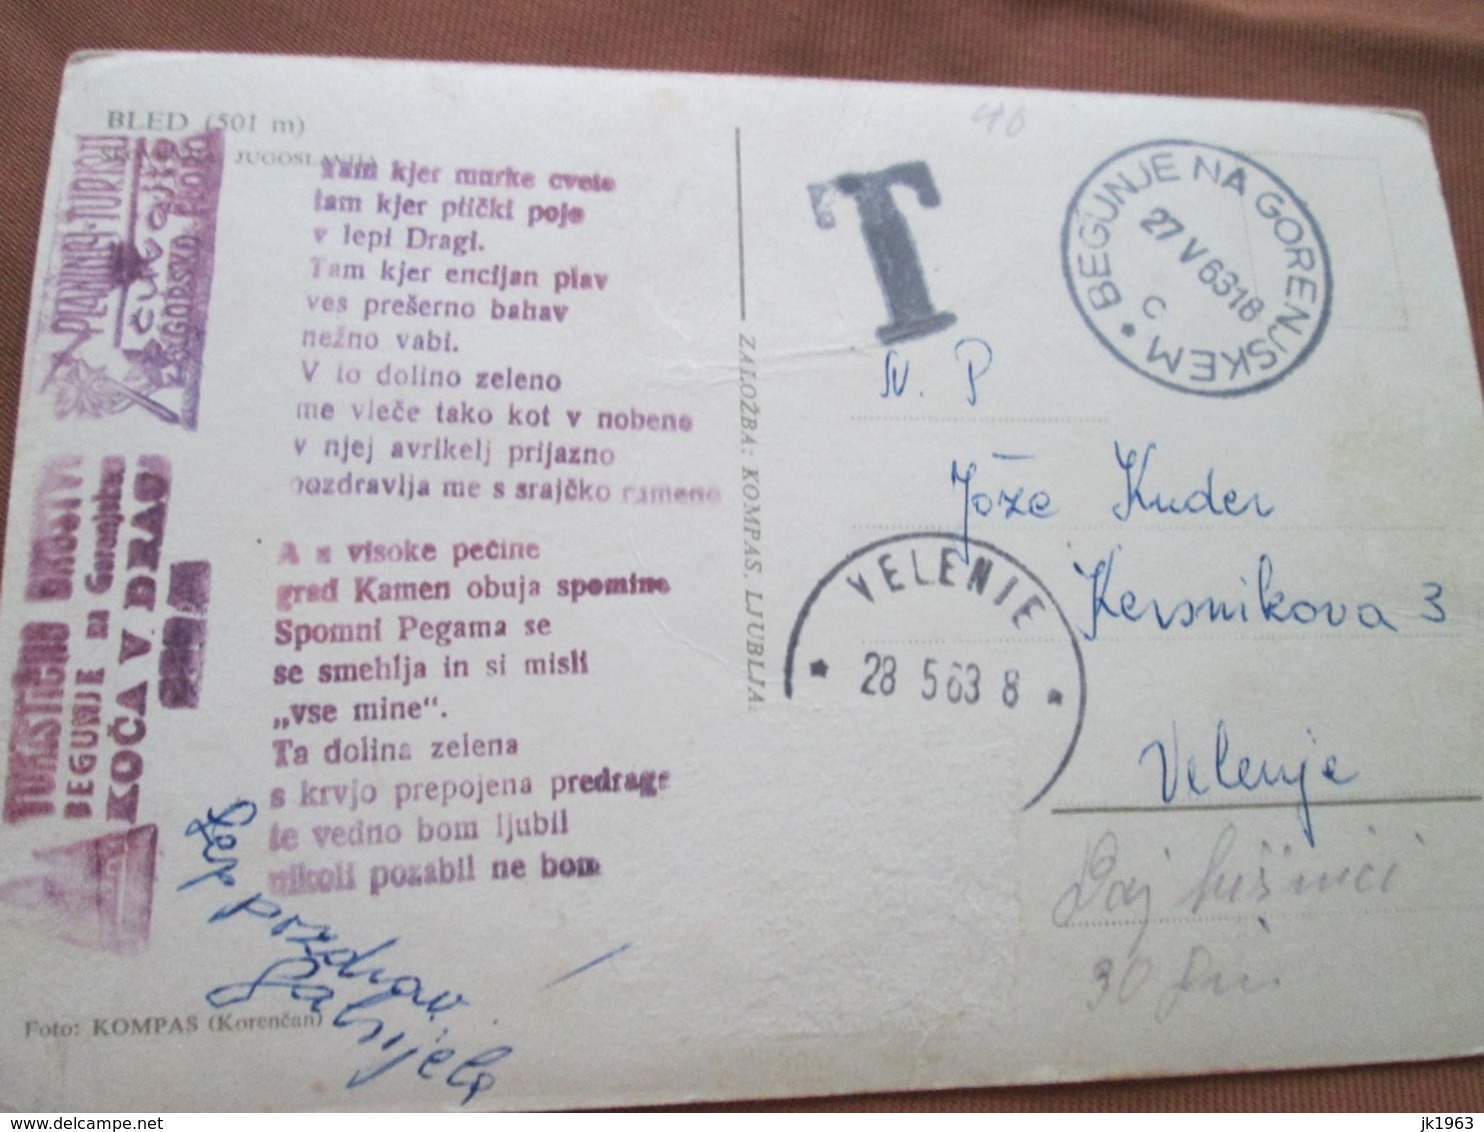 BLED (501 m)
JUGOSLAVIJA
PLANINCI-TURISTI
ČUVAJTE
ZAGORSKA
TURISTIČNO DRUŠTVO
BEGUNJE na Gorenjskem
KOČA V DRAGI
Tam kjer murke cveto
tam kjer ptički pojo
v lepi Dragi.
Tam kjer encijan plav
ves prešerno bahav
nežno vabi.
V to dolino zeleno
me vleče tako kot v nobeno
v njej avrikelj prijazno
pozdravlja me s srajčko rumeno
A z visoke pečine
grad Kamen obuja spomine
Spomni Pegama se
se smehlja in si misli
„vse mine“.
Ta dolina zelena
s krvjo prepojena predrage
te vedno bom ljubil
nikoli pozabil ne bom
Lep pozdrav
Gabrijela
Foto: KOMPAS (Korenčan)
ZALOŽBA: KOMPAS, LJUBLJANA
40
T
BEGUNJE NA GORENJSKEM
27 V 63 18
C
N. P.
Jože Kuder
Kersnikova 3
Velenje
VELENJE
28 5 63 8
30 din
jk1963